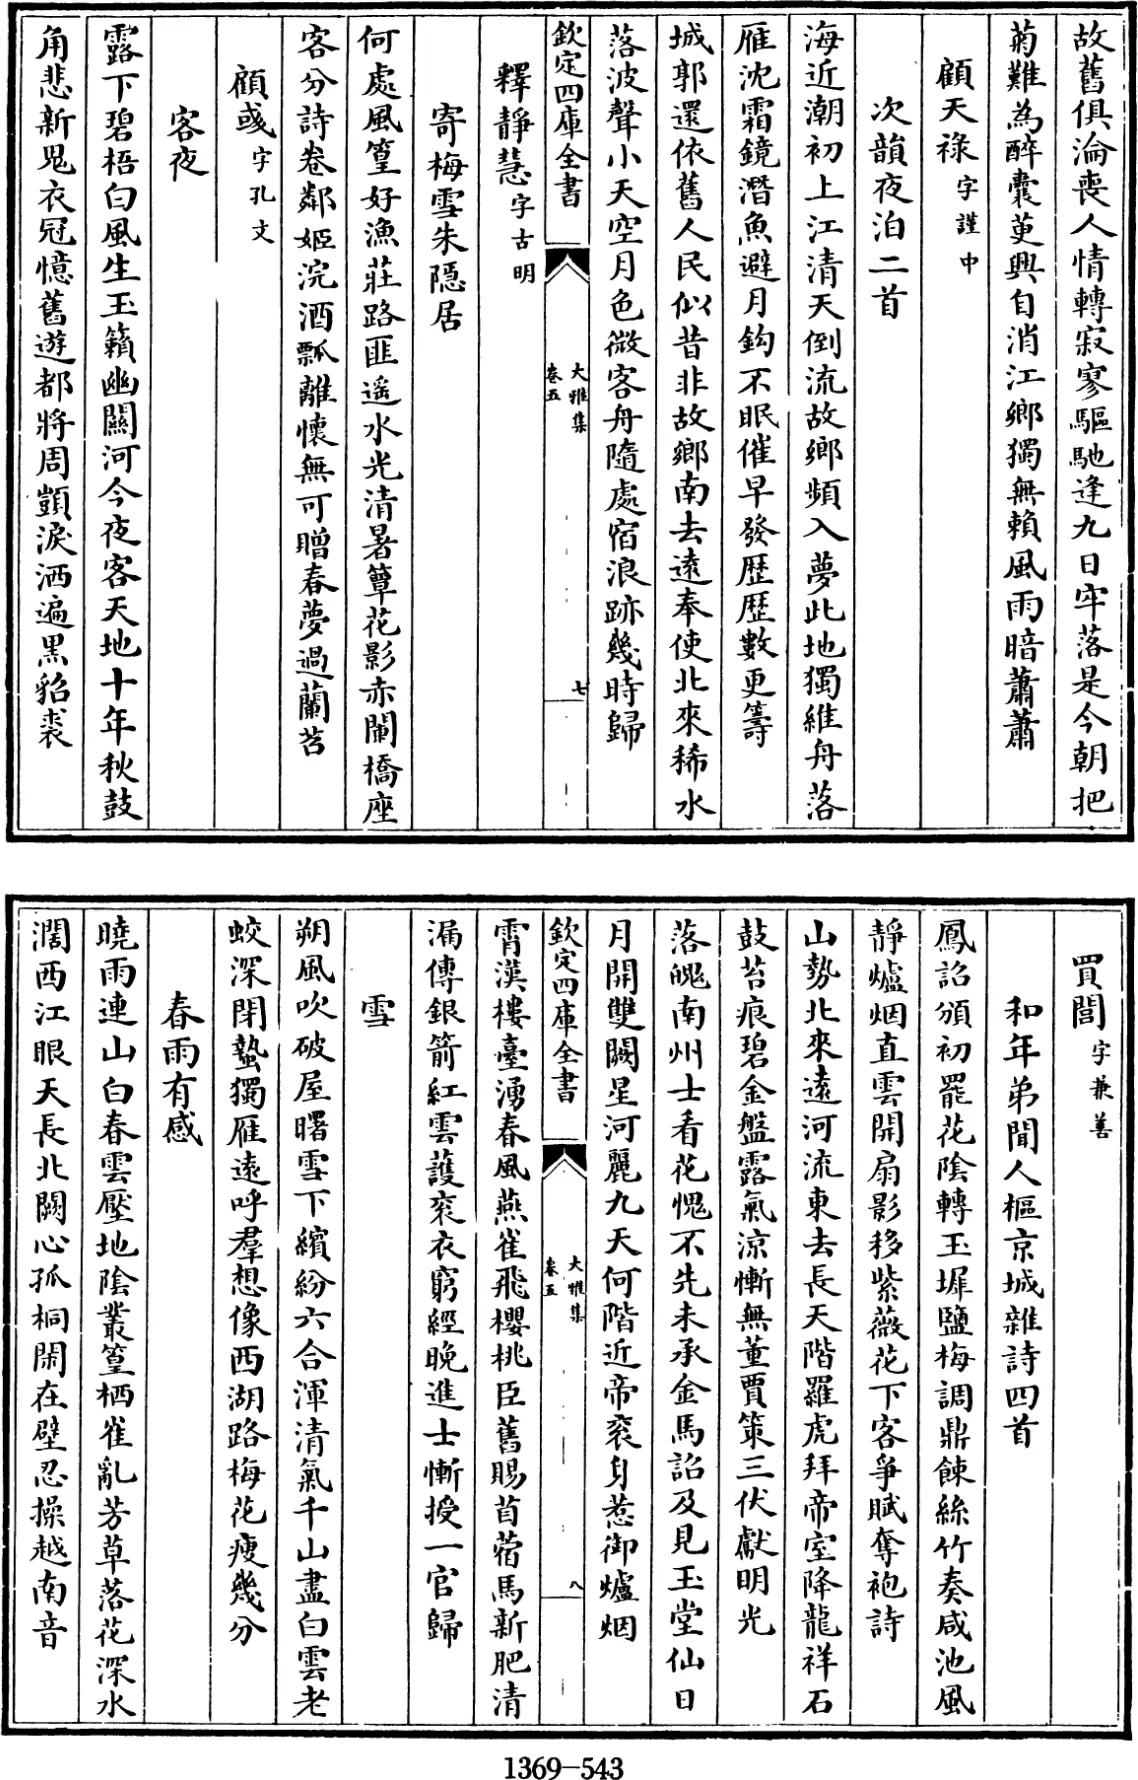 故舊俱淪喪人情轉寂寥驅馳逢九日牢落是今朝把
菊難為醉囊萸興自消江鄉獨無賴風雨暗蕭蕭
顧天祿字謹中
次韻夜泊二首
海近潮初上江清天倒流故鄉頻入夢此地獨維舟落
雁沈霜鏡潛魚避月鈎不眠催早發歴歴數更籌
城郭還依舊人民似昔非故鄉南去遠奉使北來稀水
落波聲小天空月色微客舟隨處宿浪跡幾時歸
欽定四庫全書
大雅集
卷五
七
釋靜慧字古明
寄梅雪朱隱居
何處風篁好漁莊路匪遥水光清暑簟花影赤闌橋座
客分詩卷鄰姬浣酒瓢離懷無可贈春夢過蘭苕
顧彧字孔文
客夜
露下碧梧白風生玉籟幽關河今夜客天地十年秋鼓
角悲新鬼衣冠憶舊遊都將周顗淚洒遍黒貂裘
買閭字兼善
和年弟聞人樞京城雜詩四首
鳳詔頒初罷花陰轉玉墀鹽梅調鼎餗絲竹奏咸池風
靜爐烟直雲開扇影移紫薇花下客爭賦奪袍詩
山勢北來遠河流東去長天階羅虎拜帝室降龍祥石
鼓苔痕碧金盤露氣涼慚無董賈策三伏獻明光
落魄南州士看花愧不先未承金馬詔及見玉堂仙日
月開雙闕星河麗九天何階近帝衮身惹御爐烟
欽定四庫全書
大雅集
卷五
八
霄漢樓臺湧春風燕雀飛櫻桃臣舊賜苜蓿馬新肥清
漏傳銀箭紅雲護衮衣窮經晚進士慚授一官歸
雪
朔風吹破屋曙雪下繽紛六合渾清氣千山盡白雲老
蛟深閉蟄獨雁遠呼羣想像西湖路梅花瘦幾分
春雨有感
曉雨連山白春雲壓地陰叢篁栖雀亂芳草落花深水
濶西江眼天長北闕心孤桐閒在壁忍操越南音
1369-543